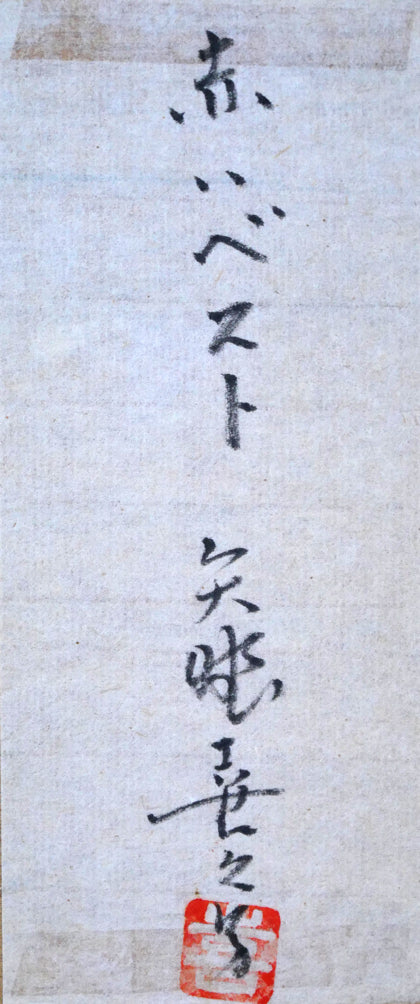 赤いベスト 矢野喜久男
喜